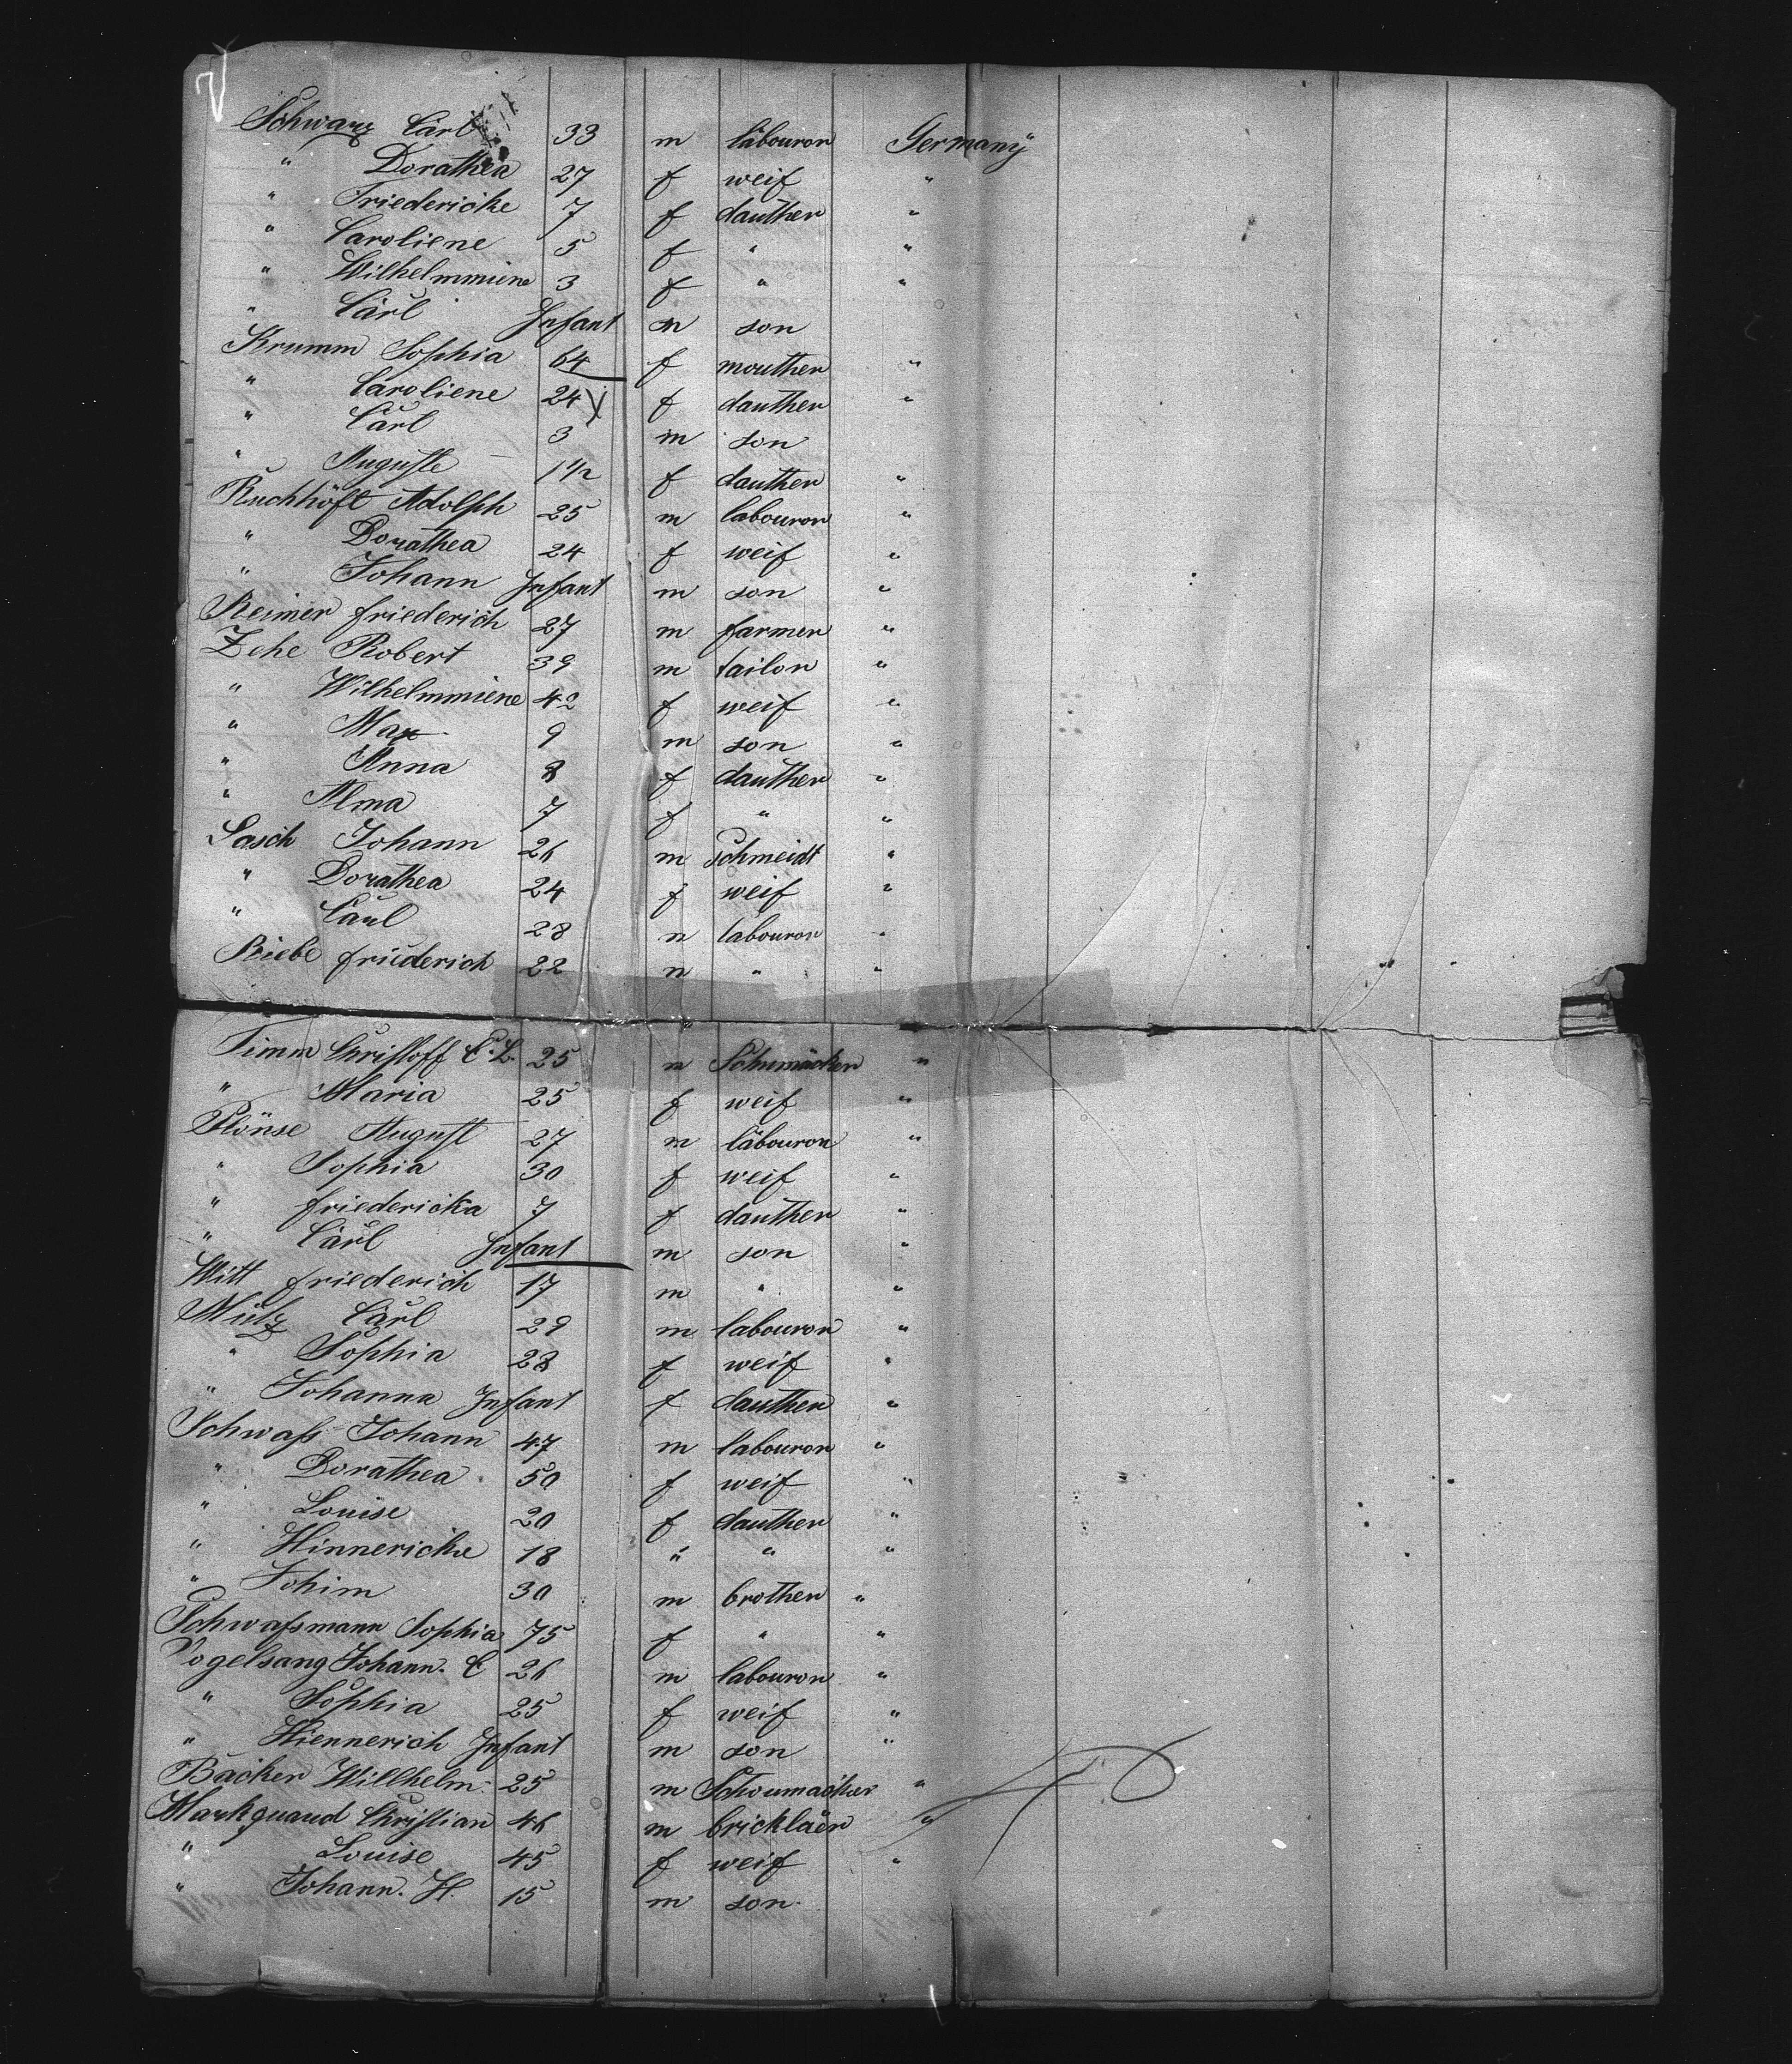 Schwarz Carl 33 m labouror Germany
" Dorathea 27 f weif "
" Friedericke 7 f dauther "
" Caroliene 5 f " "
" Wilhelmmiene 3 f " "
" Carl Infant m son
Krumm Sophia 64 f mouther "
" Caroliene 24 f dauther "
" Carl 3 m son
" Auguste 1 1/2 f dauther "
Ruchhöft Adolph 25 m labouror "
" Dorathea 24 f weif "
" Johann Infant m son "
Reimer friederich 27 m farmer "
Zehe Robert 39 m tailor "
" Wilhelmmiene 42 f weif "
" Max 9 m son "
" Anna 8 f dauther "
" Alma 7 f " "
Sasch Johann 26 m Schmeidt "
" Dorathea 24 f weif "
" Carl 28 m labouror "
Riebe friederich 22 m " "
Timm Christoff C. L. 25 m Schumacker "
" Maria 25 f weif "
Plönse August 27 m labouror "
" Sophia 30 f weif "
" friedericka 7 f dauther "
" Carl Infant m son "
Witt friederich 17 m " "
Mütz Carl 29 m labouror "
" Sophia 28 f weif "
" Johanna Infant f dauther "
Schwaß Johann 47 m labouror "
" Dorathea 50 f weif "
" Louise 20 f dauther "
" Hinnericke 18 " " "
" Johim 30 m brother "
Schwaßmann Sophia 75 f " "
Vogelsang Johann. C 26 m labouror "
" Sophia 25 f weif "
" Hiennerich Infant m son "
Backer Willhelm. 25 m Schoumacker "
Markquand Christian 46 m bricklaer "
" Louise 45 f weif "
" Johann. H. 15 m son